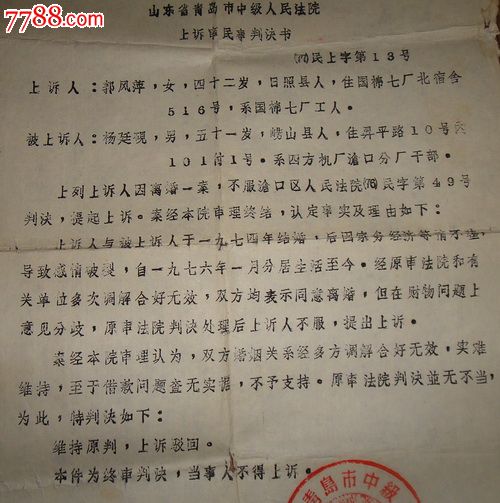 7788.com
山东省青岛市中级人民法院
上诉审民事判决书
民上字第13号
上诉人：郭风萍，女，四十二岁，日照县人，住国棉七厂北宿舍
516号，系国棉七厂工人。
被上诉人：杨廷砚，男，五十一岁，崂山县人，住昇平路10号
101付1号。系四方机厂沧口分厂干部。
上列上诉人因离婚一案，不服沧口区人民法院民字第49号
判决，提起上诉。案经本院审理终结，认定事实及理由如下：
上诉人与被上诉人于一九七四年结婚，后因家务经济等情不睦，
导致感情破裂，自一九七六年一月分居生活至今。经原审法院和有
关单位多次调解合好无效，双方均表示同意离婚，但在财物问题上
意见分歧，原审法院判决处理后上诉人不服，提出上诉。
案经本院审理认为，双方婚姻关系经多方调解合好无效，实难
维持，至于借款问题查无实据，不予支持。原审法院判决並无不当，
为此，特判决如下：
维持原判，上诉驳回。
本件为终审判决，当事人不得上诉。
青岛市中級